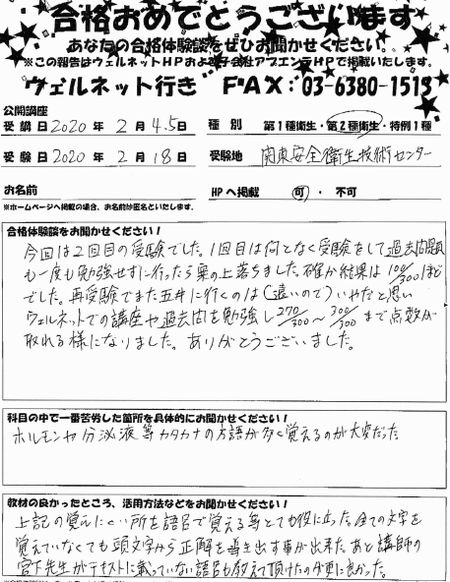 合格おめでとうございます
あなたの合格体験談をぜひお聞かせください。
※この報告はウェルネットHPおよび子会社アプエンテHPで掲載いたします。
ウェルネット行き FAX:03-6380-1513
公開講座
受講日 2020 年 2 月 4.5 日
種別 第1種衛生・第2種衛生・特例1種
受験日 2020 年 2 月 18 日
受験地 関東安全衛生技術センター
お名前
HPへ掲載 可 ・ 不可
※ホームページへ掲載の場合、お名前は匿名といたします。
合格体験談をお聞かせください!
今回は2回目の受験でした。1回目は何となく受験をして過去問題
も一度も勉強せずに行ったら案の上落ちました。確か結果は100/300ほど
でした。再受験でまた五井に行くのは(遠いので)いやだと思い
ウェルネットでの講座や過去問を勉強し270/300〜300/300まで点数が
取れる様になりました。ありがとうございました。
科目の中で一番苦労した箇所を具体的にお聞かせください!
ホルモンや分泌液等カタカナの方語が多く覚えるのが大変だった
教材の良かったところ、活用方法などをお聞かせください!
上記の覚えにくい所を語呂で覚える等とても役に立った。全ての文字を
覚えていなくても頭文字から正解を導き出す事が出来た。あと講師の
宮下先生がテキストに載っていない語呂も教えて頂けたのが更に良かった。